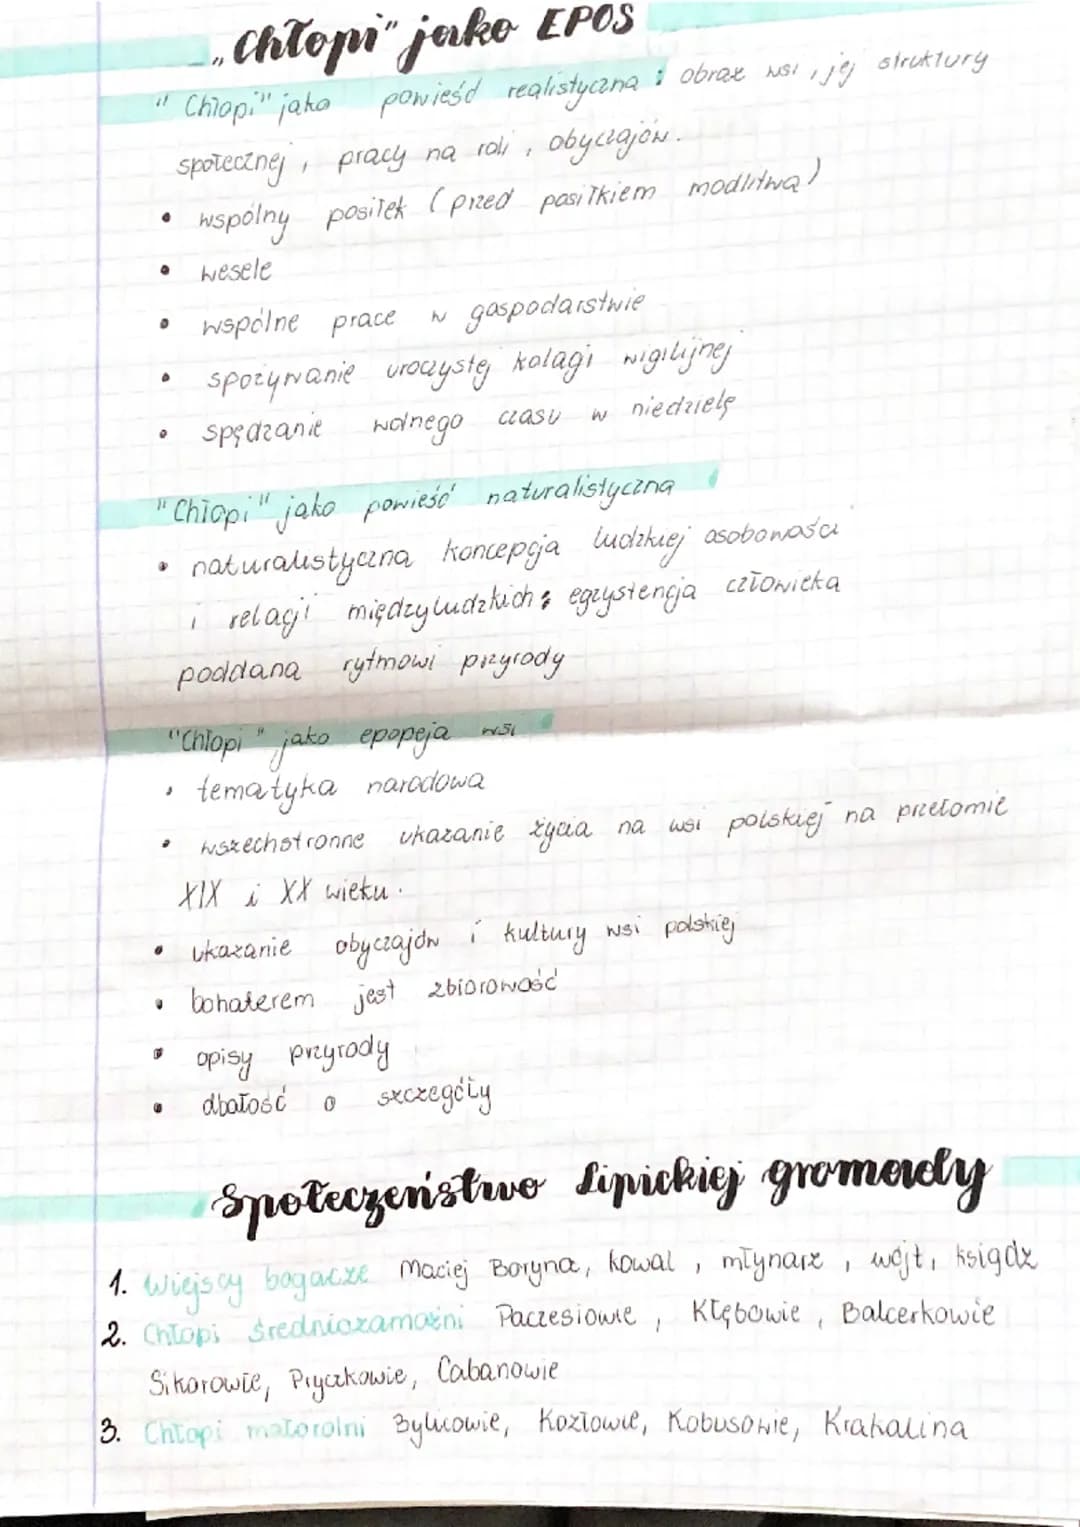 „Chłopi" jako EPOS
"Chłopi" jako powieść realistyczna : obraz wsi, jej struktury
społecznej, pracy na roli, obyczajów.
• wspólny posiłek (przed posiłkiem modlitwa)
• wesele
• wspólne prace w gospodarstwie
• spożywanie uroczystej kolacji wigilijnej
• spędzanie wolnego czasu w niedzielę
"Chłopi" jako powieść naturalistyczna
• naturalistyczna koncepcja ludzkiej osobowości
i relacji międzyludzkich; egzystencja człowieka
poddana rytmowi przyrody
"Chłopi" jako epopeja wsi
• tematyka narodowa
• wszechstronne ukazanie życia na wsi polskiej na przełomie
XIX i XX wieku.
• ukazanie obyczajów i kultury wsi polskiej
• bohaterem jest zbiorowość
• opisy przyrody
• dbałość o szczegóły
Społeczeństwo Lipickiej gromady
1. Wiejscy bogacze Maciej Boryna, kowal, młynarz, wójt, ksiądz
2. Chłopi średniozamożni Paczesiowie, Kłębowie, Balcerkowie
Sikorowie, Pryczkowie, Cabanowie
3. Chłopi małorolni Bylicowie, Kozłowie, Kobusowie, Krakalina